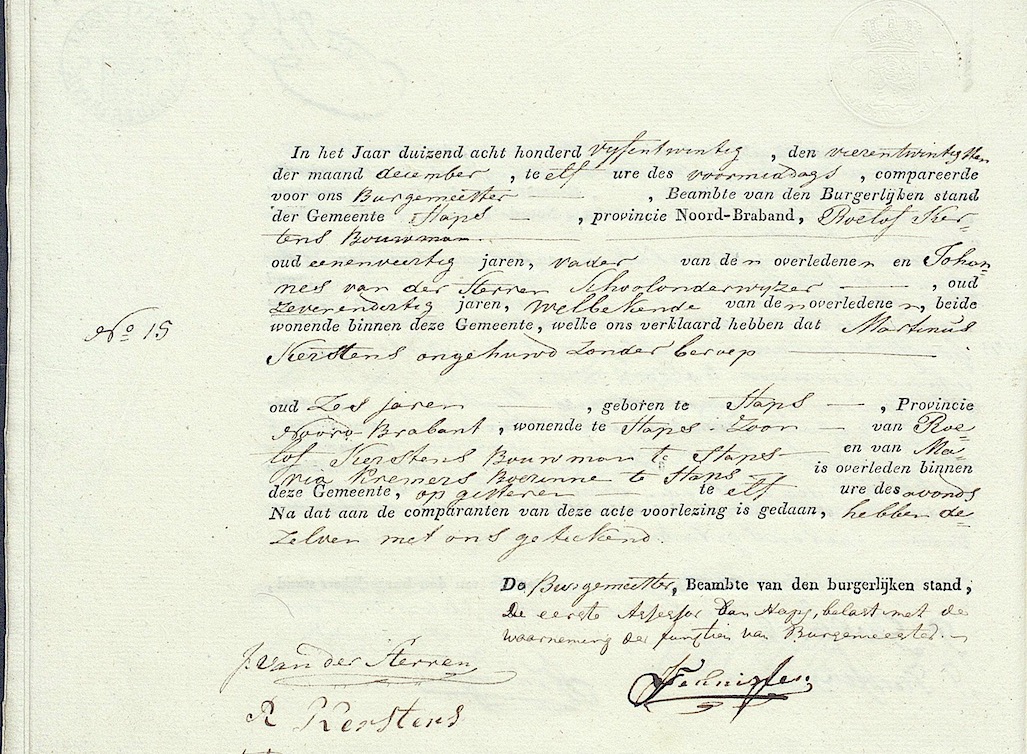 In het Jaar duizend acht honderd vyfentwintig, den vierentwintigsten
der maand december, te elf ure des voormiddags, compareerde
voor ons Burgemeester, Beambte van den Burgerlijken stand
der Gemeente Haps, provincie Noord-Braband, Roelof Ker-
stens Bouwman
oud eenenveertig jaren, vader van den overledenen en Johan-
nes van der Sterren Schoolonderwyzer, oud
zevenendertig jaren, welbekende van den overledenen, beide
wonende binnen deze Gemeente, welke ons verklaard hebben dat Martinus
Nº 15
Kerstens ongehuwd zonder beroep
oud Zes jaren, geboren te Haps, Provincie
Noord Brabant, wonende te Haps - Zoon van Roe-
lof Kerstens Bouwman te Haps en van Ma-
ria Kremers Boerinne te Haps is overleden binnen
deze Gemeente, op gisteren te elf ure des avonds
Na dat aan de comparanten van deze acte voorlezing is gedaan, hebben de-
zelven met ons getekend.
De Burgemeester, Beambte van den burgerlijken stand,
De eerste Assessor van Haps, belast met de
waarneming der functien van Burgemeester.
J. van der Sterren
R Kerstens